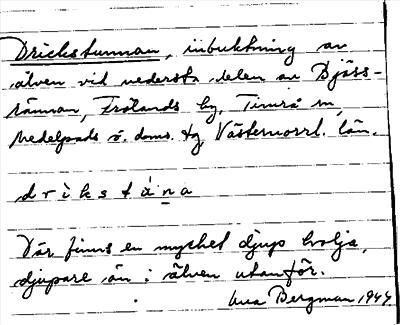 Drickstunnan, inbuktning av
älven vid nedersta delen av Bjäss-
rännan, Frölands by, Timrå sn,
Medelpads ö. doms. tg, Västernorrl. län.
d r i k s t a n a
Där finns en mycket djup hölja,
djupare än i älven utanför.
Bergman 1944